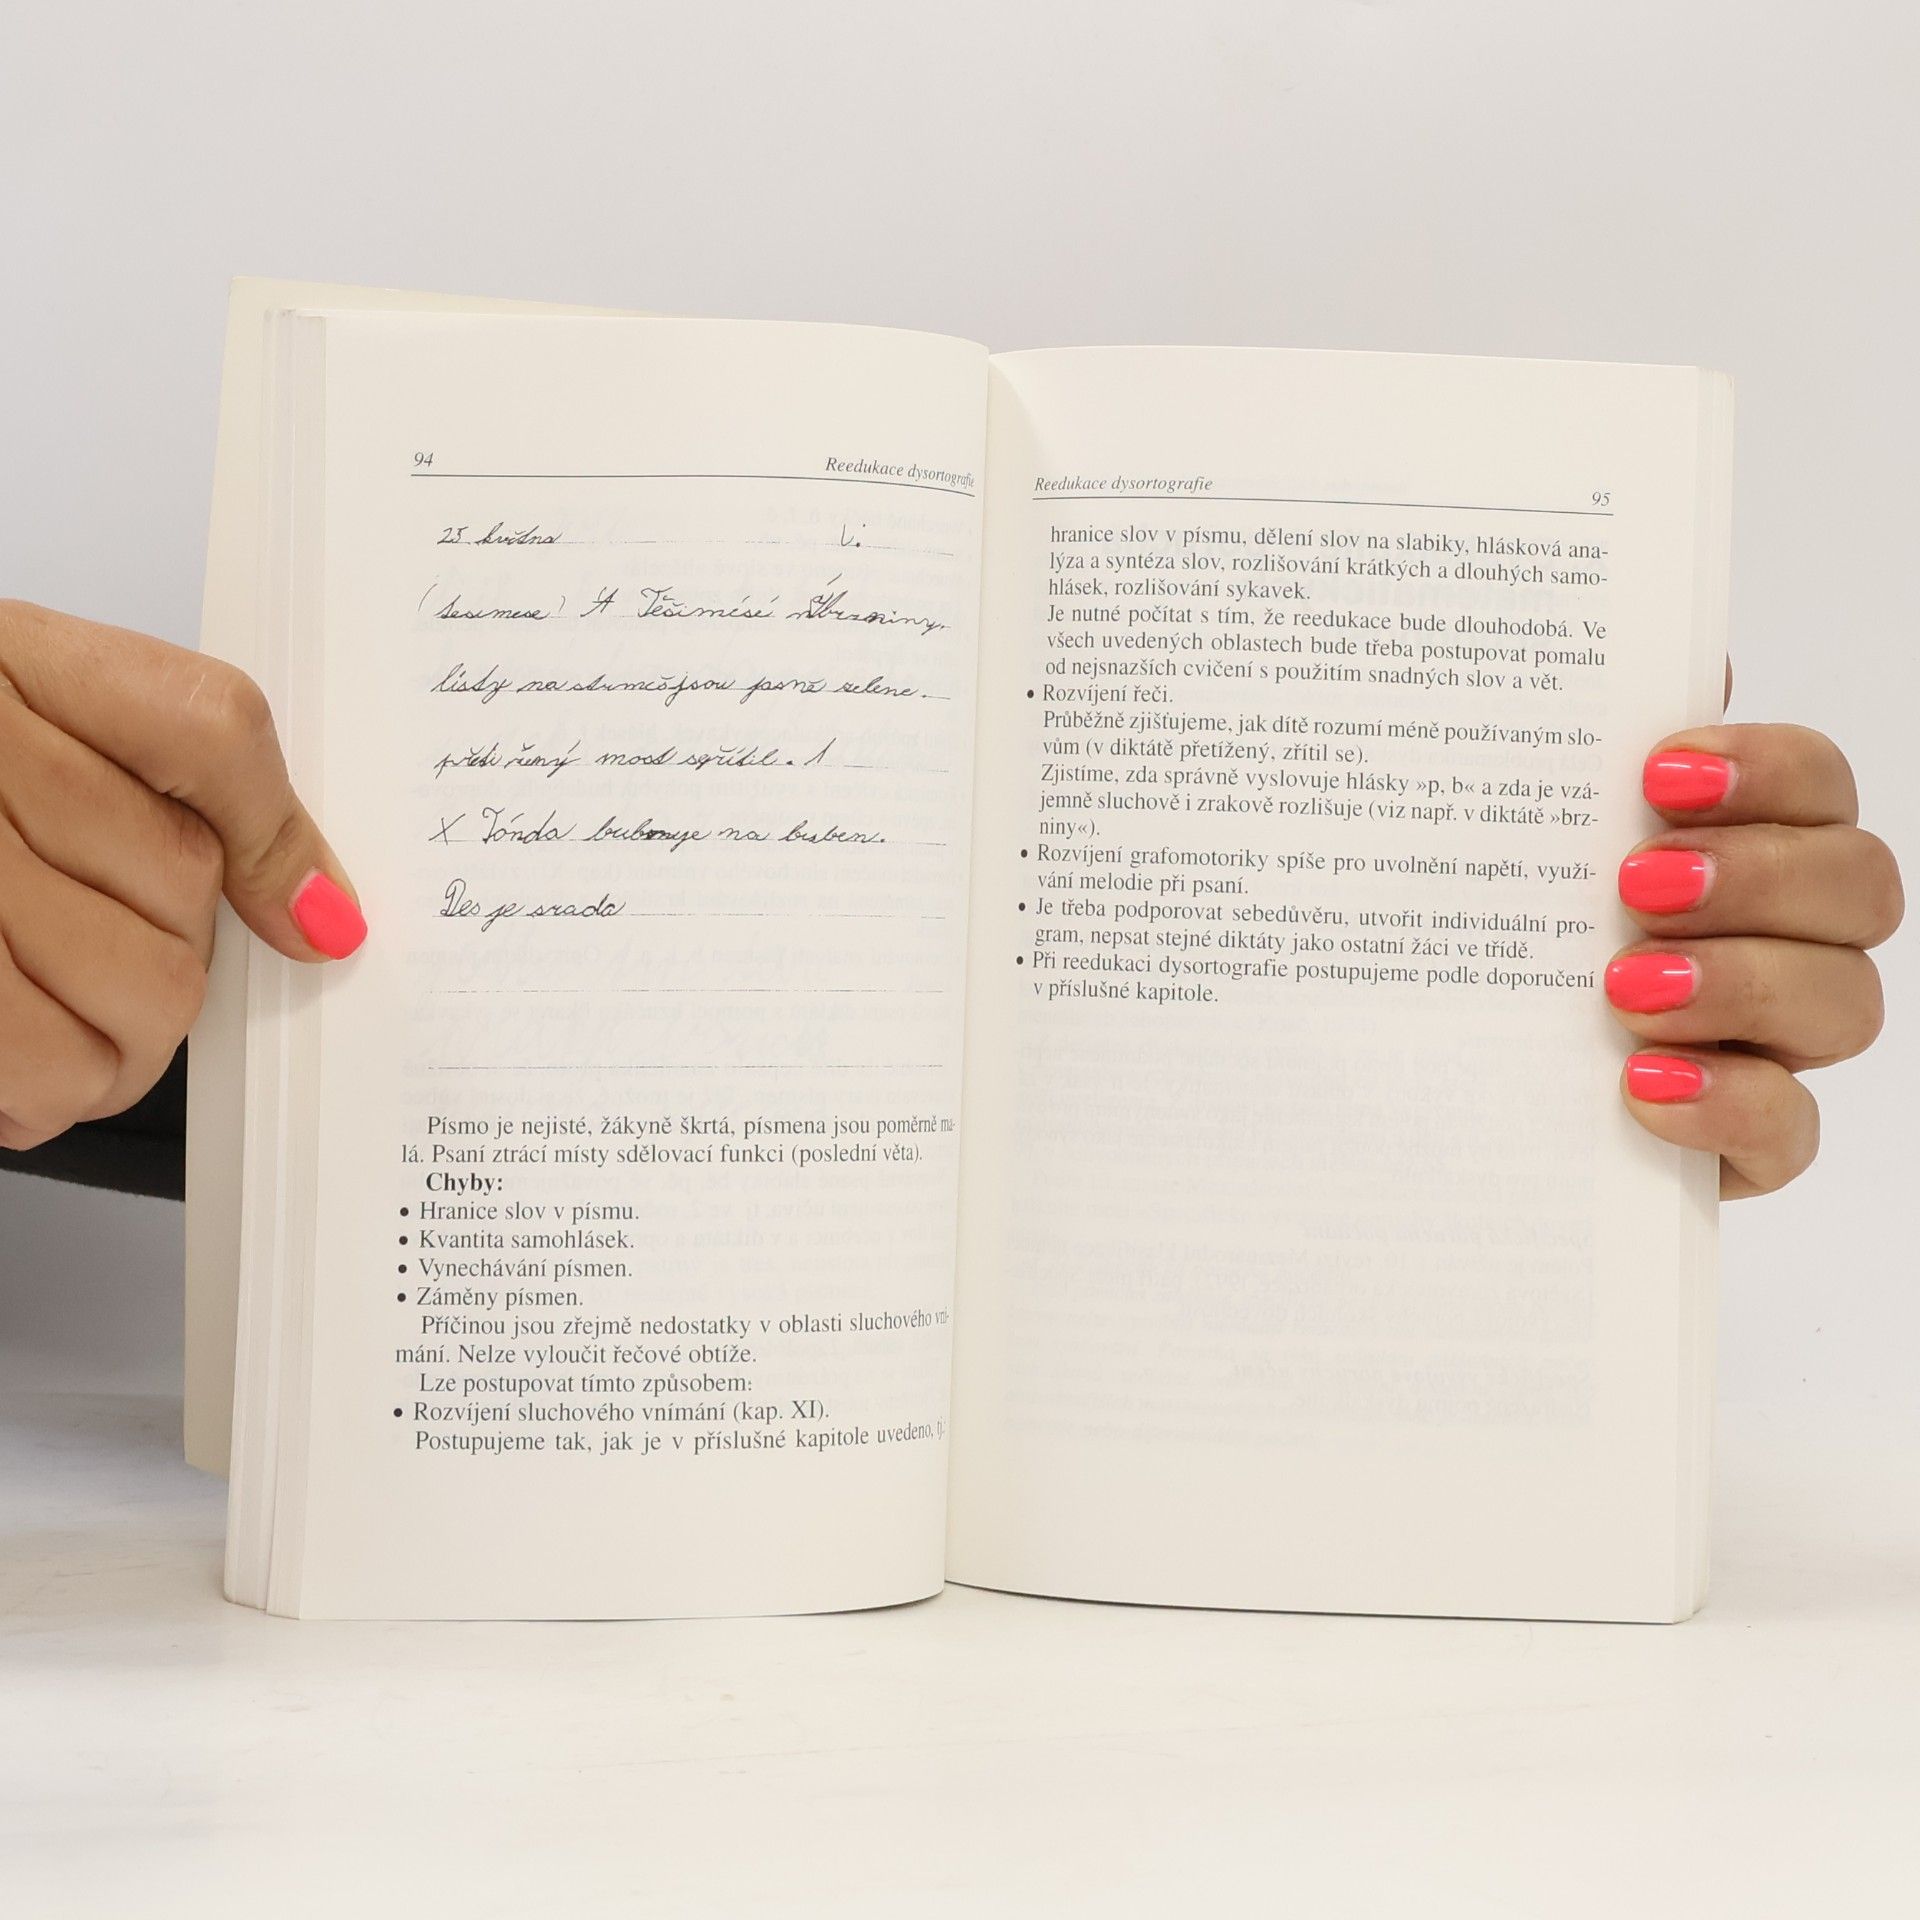 94
Reedukace dysortografie
25 května
listy na jsou jasně zelene.
most
X Tónda na buben.
je
Písmo je nejisté, žákyně škrtá, písmena jsou poměrně ma-
lá. Psaní ztrácí místy sdělovací funkci (poslední věta).
Chyby:
• Hranice slov v písmu.
• Kvantita samohlásek.
• Vynechávání písmen.
• Záměny písmen.
Příčinou jsou zřejmě nedostatky v oblasti sluchového vní-
mání. Nelze vyloučit řečové obtíže.
Lze postupovat tímto způsobem:
• Rozvíjení sluchového vnímání (kap. XI).
Postupujeme tak, jak je v příslušné kapitole uvedeno, tj.
Reedukace dysortografie
95
hranice slov v písmu, dělení slov na slabiky, hlásková ana-
lýza a syntéza slov, rozlišování krátkých a dlouhých samo-
hlásek, rozlišování sykavek.
Je nutné počítat s tím, že reedukace bude dlouhodobá. Ve
všech uvedených oblastech bude třeba postupovat pomalu
od nejsnazších cvičení s použitím snadných slov a vět.
• Rozvíjení řeči.
Průběžně zjišťujeme, jak dítě rozumí méně používaným slo-
vům (v diktátě přetížený, zřítil se).
Zjistíme, zda správně vyslovuje hlásky »p, b« a zda je vzá-
jemně sluchově i zrakově rozlišuje (viz např. v diktátě »brz-
niny«).
• Rozvíjení grafomotoriky spíše pro uvolnění napětí, využí-
vání melodie při psaní.
• Je třeba podporovat sebedůvěru, utvořit individuální pro-
gram, nepsat stejné diktáty jako ostatní žáci ve třídě.
• Při reedukaci dysortografie postupujeme podle doporučení
v příslušné kapitole.